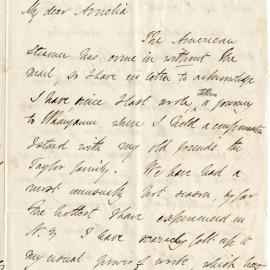 My dear Amelia
The American
Steamer has come in without the
mail, so I have no letter to acknowledge
I have since I last wrote, taken a journey
to Whanganui where I held a confirmation
I staid with my old friends the
Taylor family. We have had a
most unusually hot season, by far
the hottest I have experienced in
N.Z. I have scarcely felt up to
my usual powers of work, which has